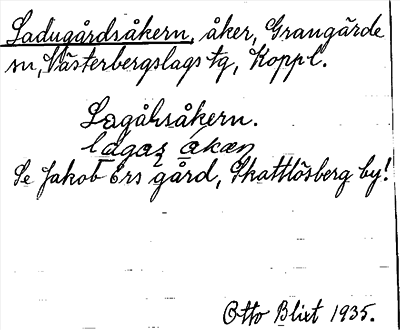 Ladugårdsåkern, åker, Grangärde
sn, Västerbergslags tg, Koppl.
Lagåksåkern.
Se Jakob Ers gård, Skattlösberg by!
Otto Blixt 1935.